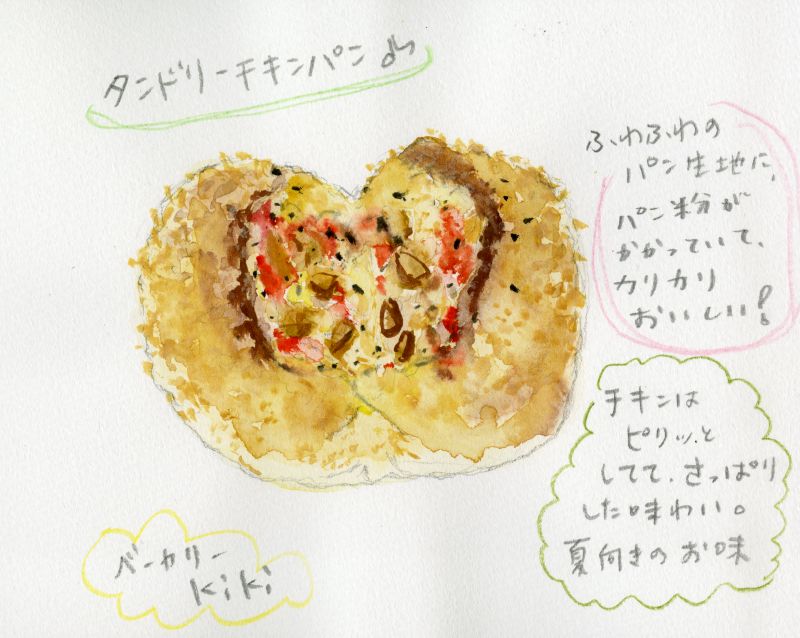 タンドリーチキンパン♪
ふわふわの
パン生地に、
パン粉が
かかっていて、
カリカリ
おいしい!
チキンは
ピリッと
してて、さっぱり
した味わい。
夏向きのお味
ベーカリー
KiKi